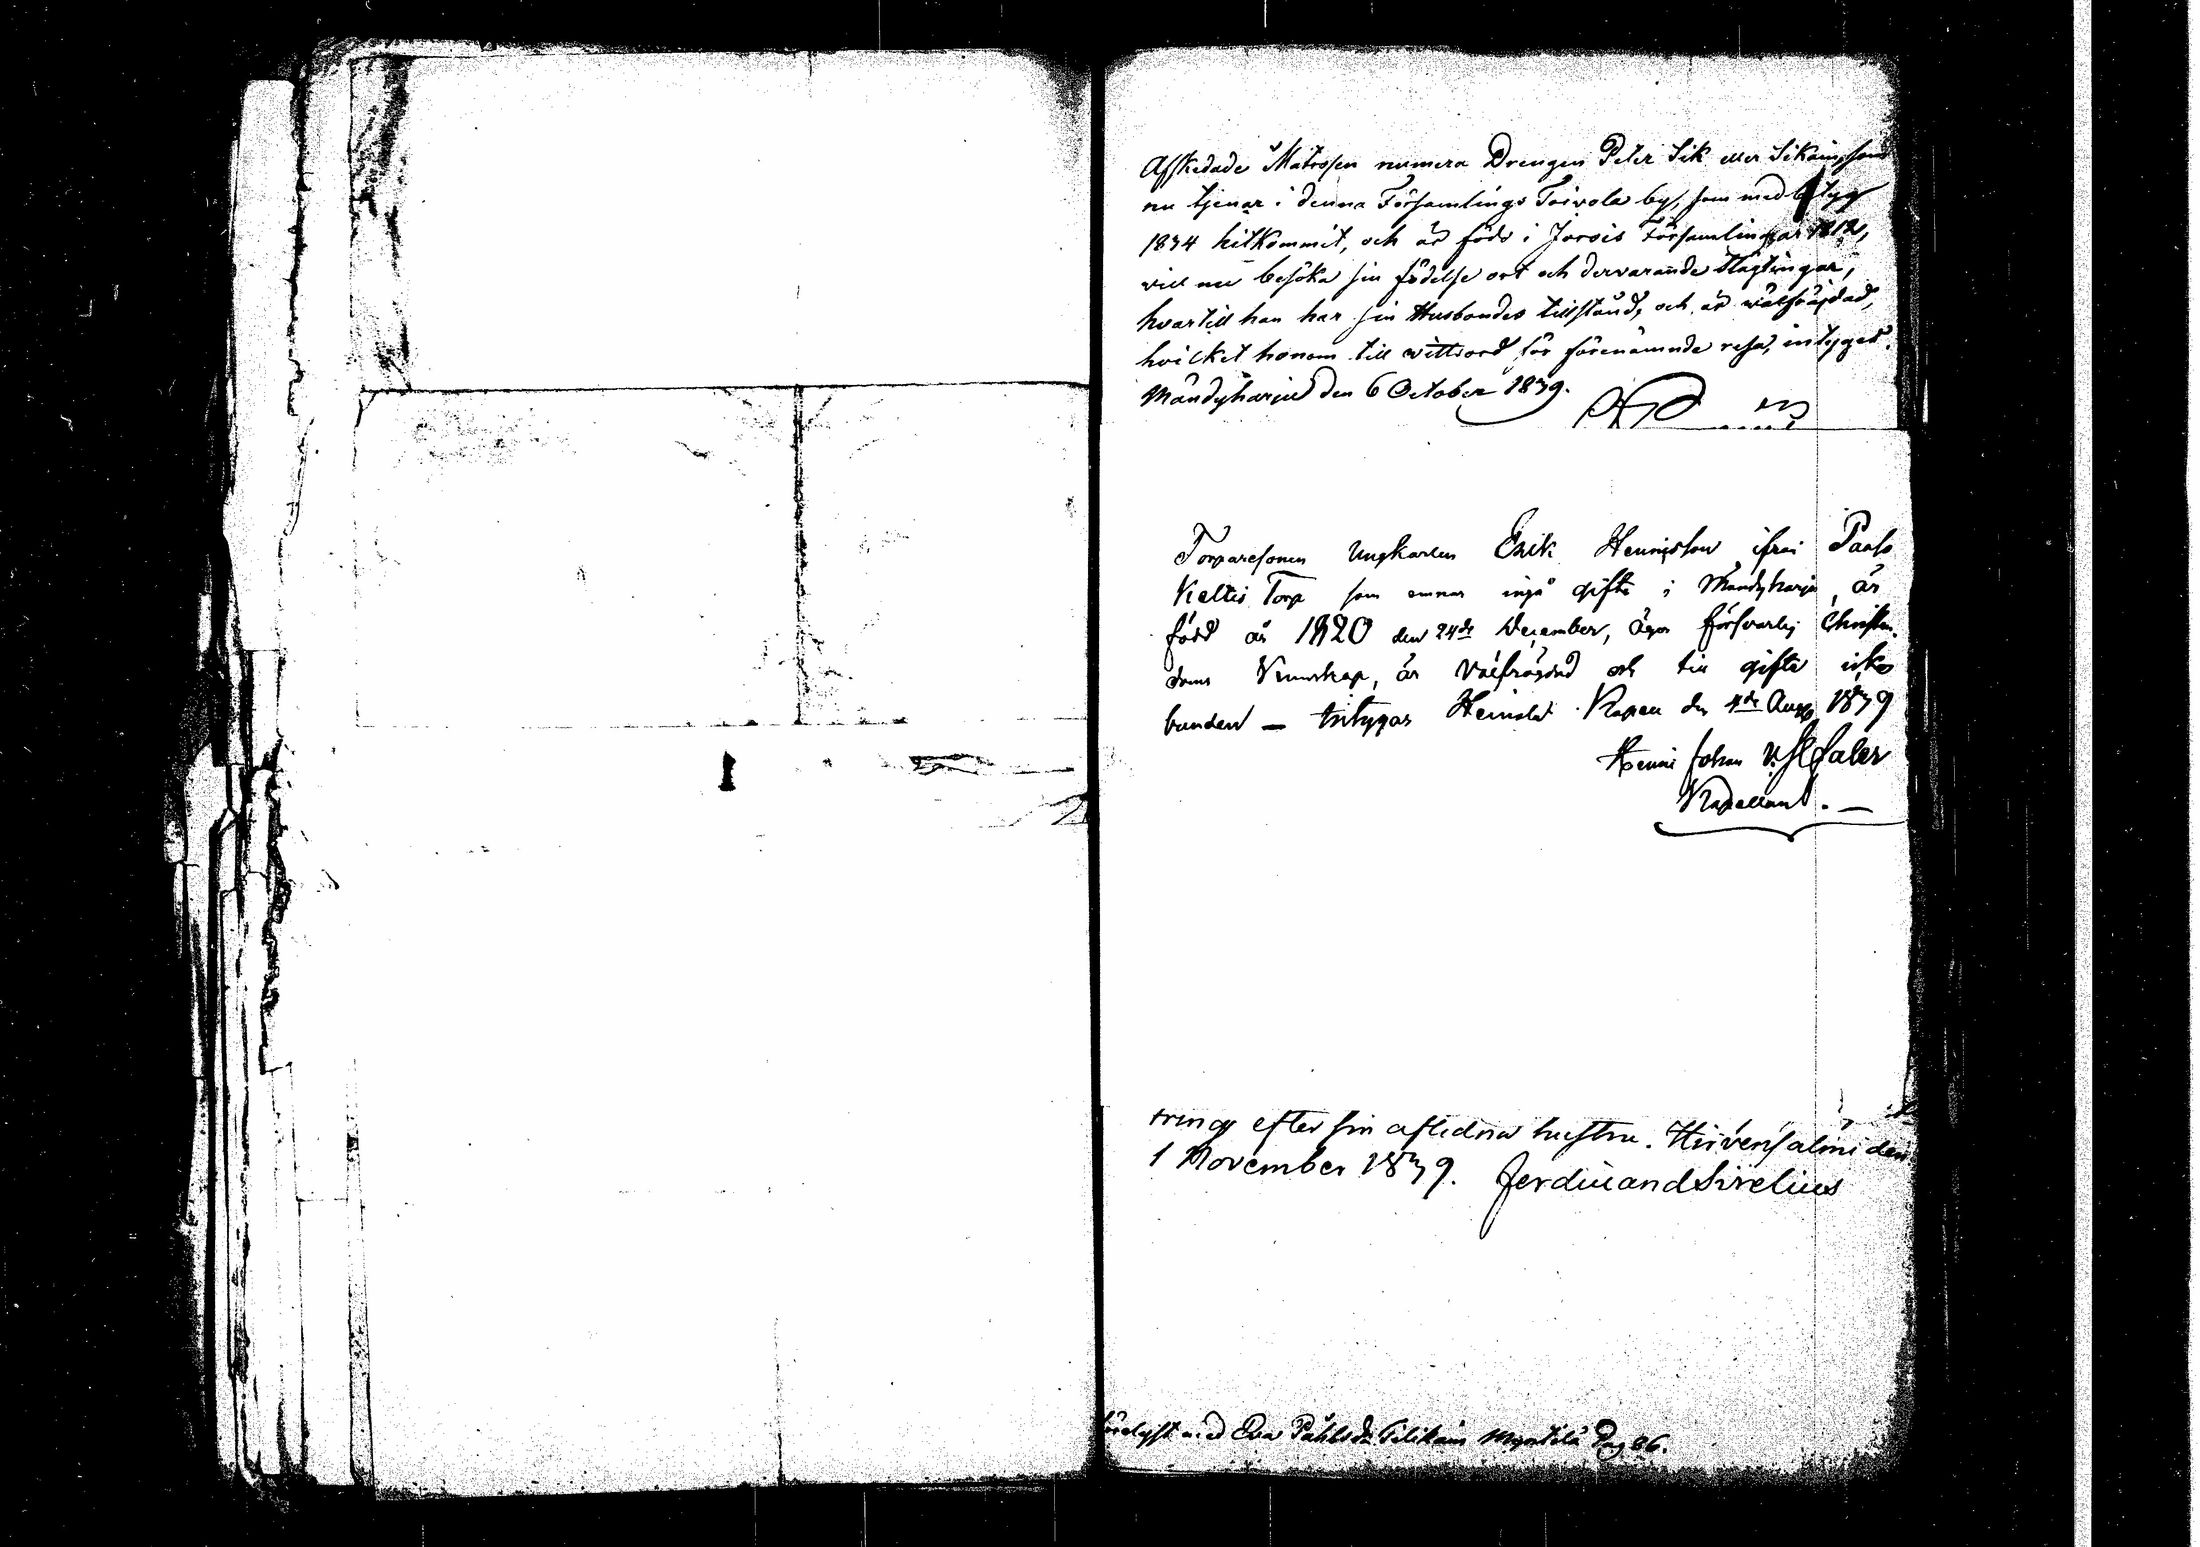 Afskedade Matrosen numera Drengen Peter Sik eller Sikain som
nu tjenar i denna Församlings Toivola by, som med betyg
1834 hitkommit, och är född i Jorois Församling år 1812,
vill nu besöka sin födelse ort och dervarande slägtingar,
hvartill han har sin Husbondes tillstånd, och är wälfräjdad,
hvilket honom till wittsord för förenämnde resa, intygas.
Mändyharju den 6 October 1839.
Torparesonen Ungkarlen Erik Heinisson ifrån Paaso
Keltis Torp som ernar ingå gifte i Mändyharju, är
född år 1820 den 24de December, äger försvarlig Christen-
doms Kunskap, är Välfräjdad och till gifte icke
bunden — Intygas Heinola Kapell den 4de Aug 1839
Johan
Kapellan. —
tring efter sin aflidna hustru. Hirvensalmi den
1 November 1839. Ferdinand Sirelius
med Eva Påhlsdr Pilikain Myntilä Pag 86.